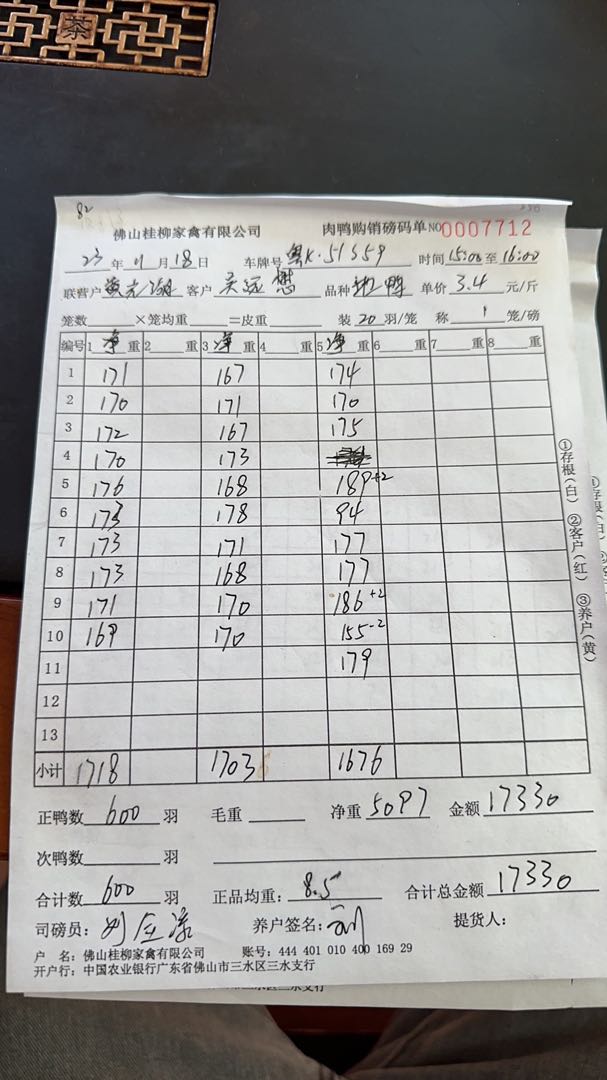 茶
82
佛山桂柳家禽有限公司 肉鸭购销磅码单 NO 0007712
23 年 11 月 18 日 车牌号 粤K·51S59 时间 15:00 至 16:00
联营户 客户 吴远懋 品种 鸭 单价 3.4 元/斤
笼数 ×笼均重 =皮重 装 20 羽/笼 称 1 笼/磅
编号 1 净 重 2 重 3 净 重 4 重 5 净 重 6 重 7 重 8 重
1 171 167 174
2 170 171 170
3 172 167 175
4 170 173
5 176 168 189+2
6 173 178 94
7 173 171 177
8 173 168 177
9 171 170 186+2
10 169 170 155-2
11 179
12
13
小计 1718 1703 1676
正鸭数 600 羽 毛重 净重 5097 金额 17330
次鸭数 羽
合计数 600 羽 正品均重: 8.5 合计总金额 17330
司磅员: 养户签名: 提货人:
户 名: 佛山桂柳家禽有限公司 账号: 444 401 010 400 169 29
开户行: 中国农业银行广东省佛山市三水区三水支行
①存根(白) ②客户(红) ③养户(黄)